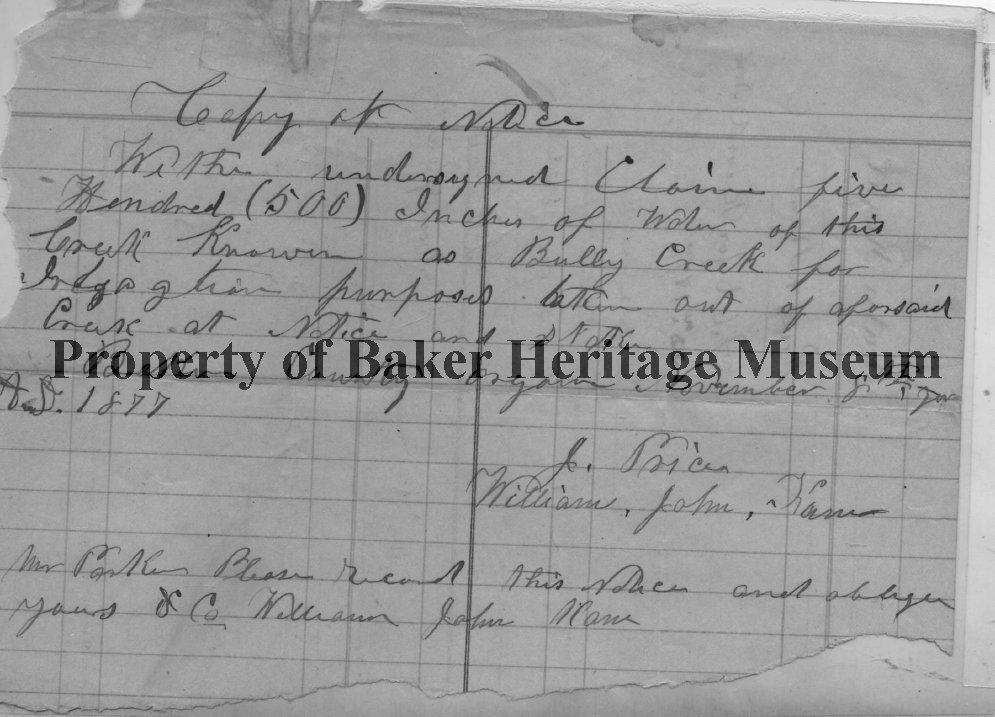 Copy of Notice
We the undersigned Claim five
Hundred (500) Inches of Water of this
Creek Known as Bully Creek for
purposes taken out of aforsaid
Creek at Notice and Stake
Property of Baker Heritage Museum
County Orgon November 8th
A.D. 1877
J. Price
William, John, Kane
Mr Please record this Notice and oblige
yours & Co William John Kane